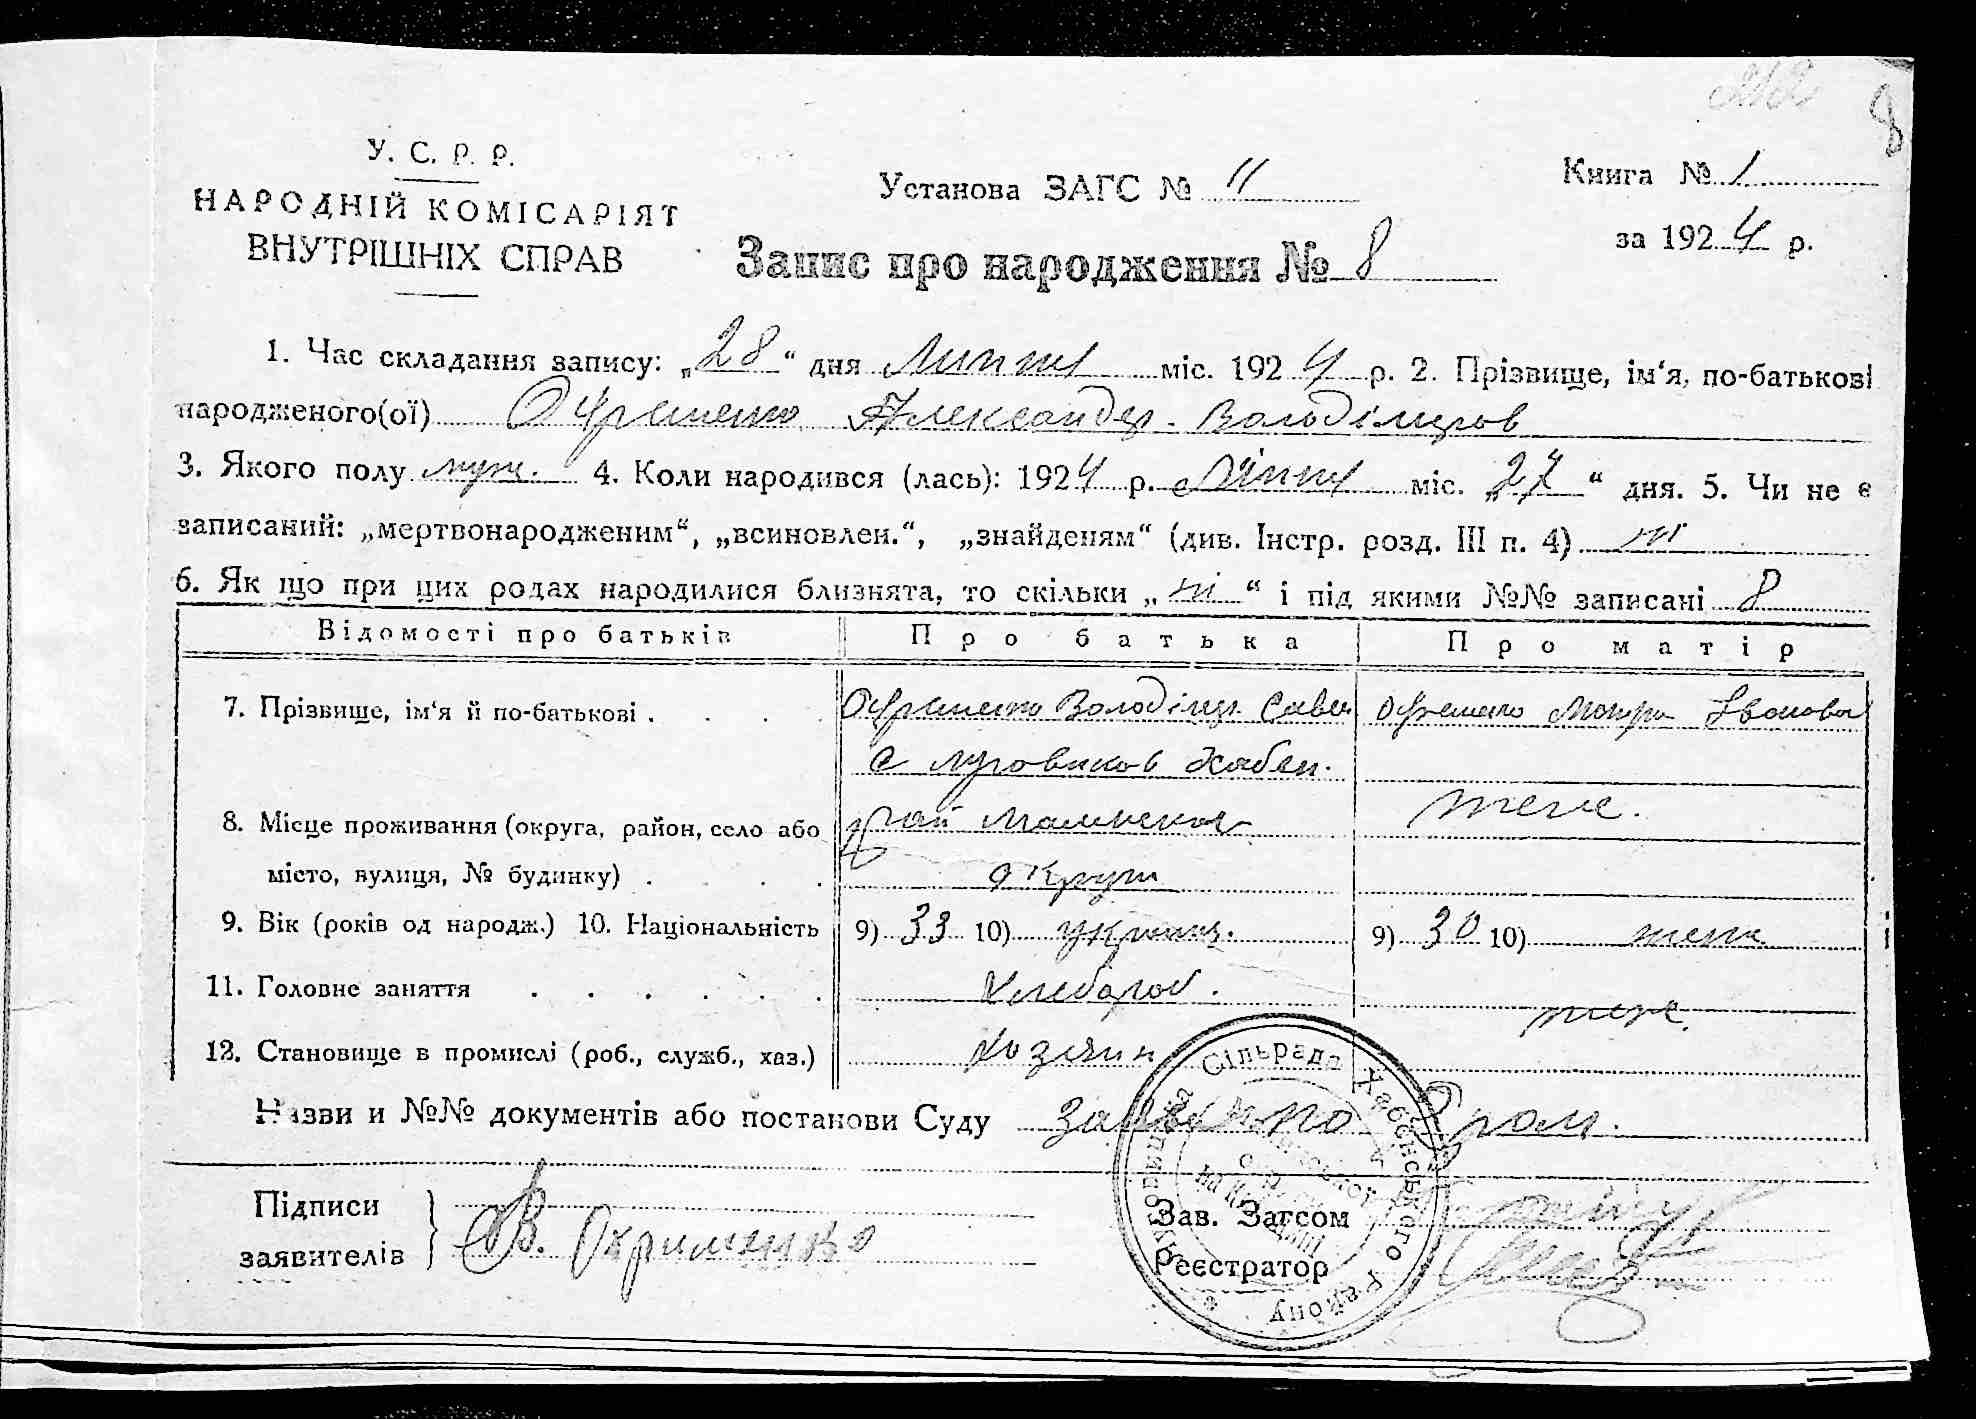 8
У. С. Р. Р.
НАРОДНІЙ КОМІСАРІЯТ
ВНУТРІШНІХ СПРАВ
Установа ЗАГС № 11
Книга № 1
за 1924 р.
Запис про народження № 8
1. Час складання запису: „28“ дня Липня міс. 1924 р. 2. Прізвище, ім‘я, по-батькові
народженого(ої) Охрименко Александер Володімиров
3. Якого полу муж. 4. Коли народився (лась): 1924 р. Липня міс. „27“ дня. 5. Чи не є
записаний: „мертвонародженим“, „всиновлен.“, „знайденям“ (див. Інстр. розд. III п. 4) ні
6. Як що при цих родах народилися близнята, то скільки „ні“ і під якими №№ записані 8
Відомості про батьків Про батька Про матір
7. Прізвище, ім‘я й по-батькові . . . . Охрименко Володімир Савви Охрименко Мотря Івановна
с Луговиков Хабен.
8. Місце проживання (округа, район, село або рай Малинской теже.
місто, вулиця, № будинку) . . . округи
9. Вік (років од народж.) 10. Національність 9) 33 10) украин. 9) 30 10) теже
11. Головне заняття . . . . . . Хлебороб. теже.
12. Становище в промислі (роб., служб., хаз.) Хозяин
Назви и №№ документів або постанови Суду
Підписи
заявителів В. Охрименко
Зав. Загсом
Реєстратор
Сільрада Хабенського Району